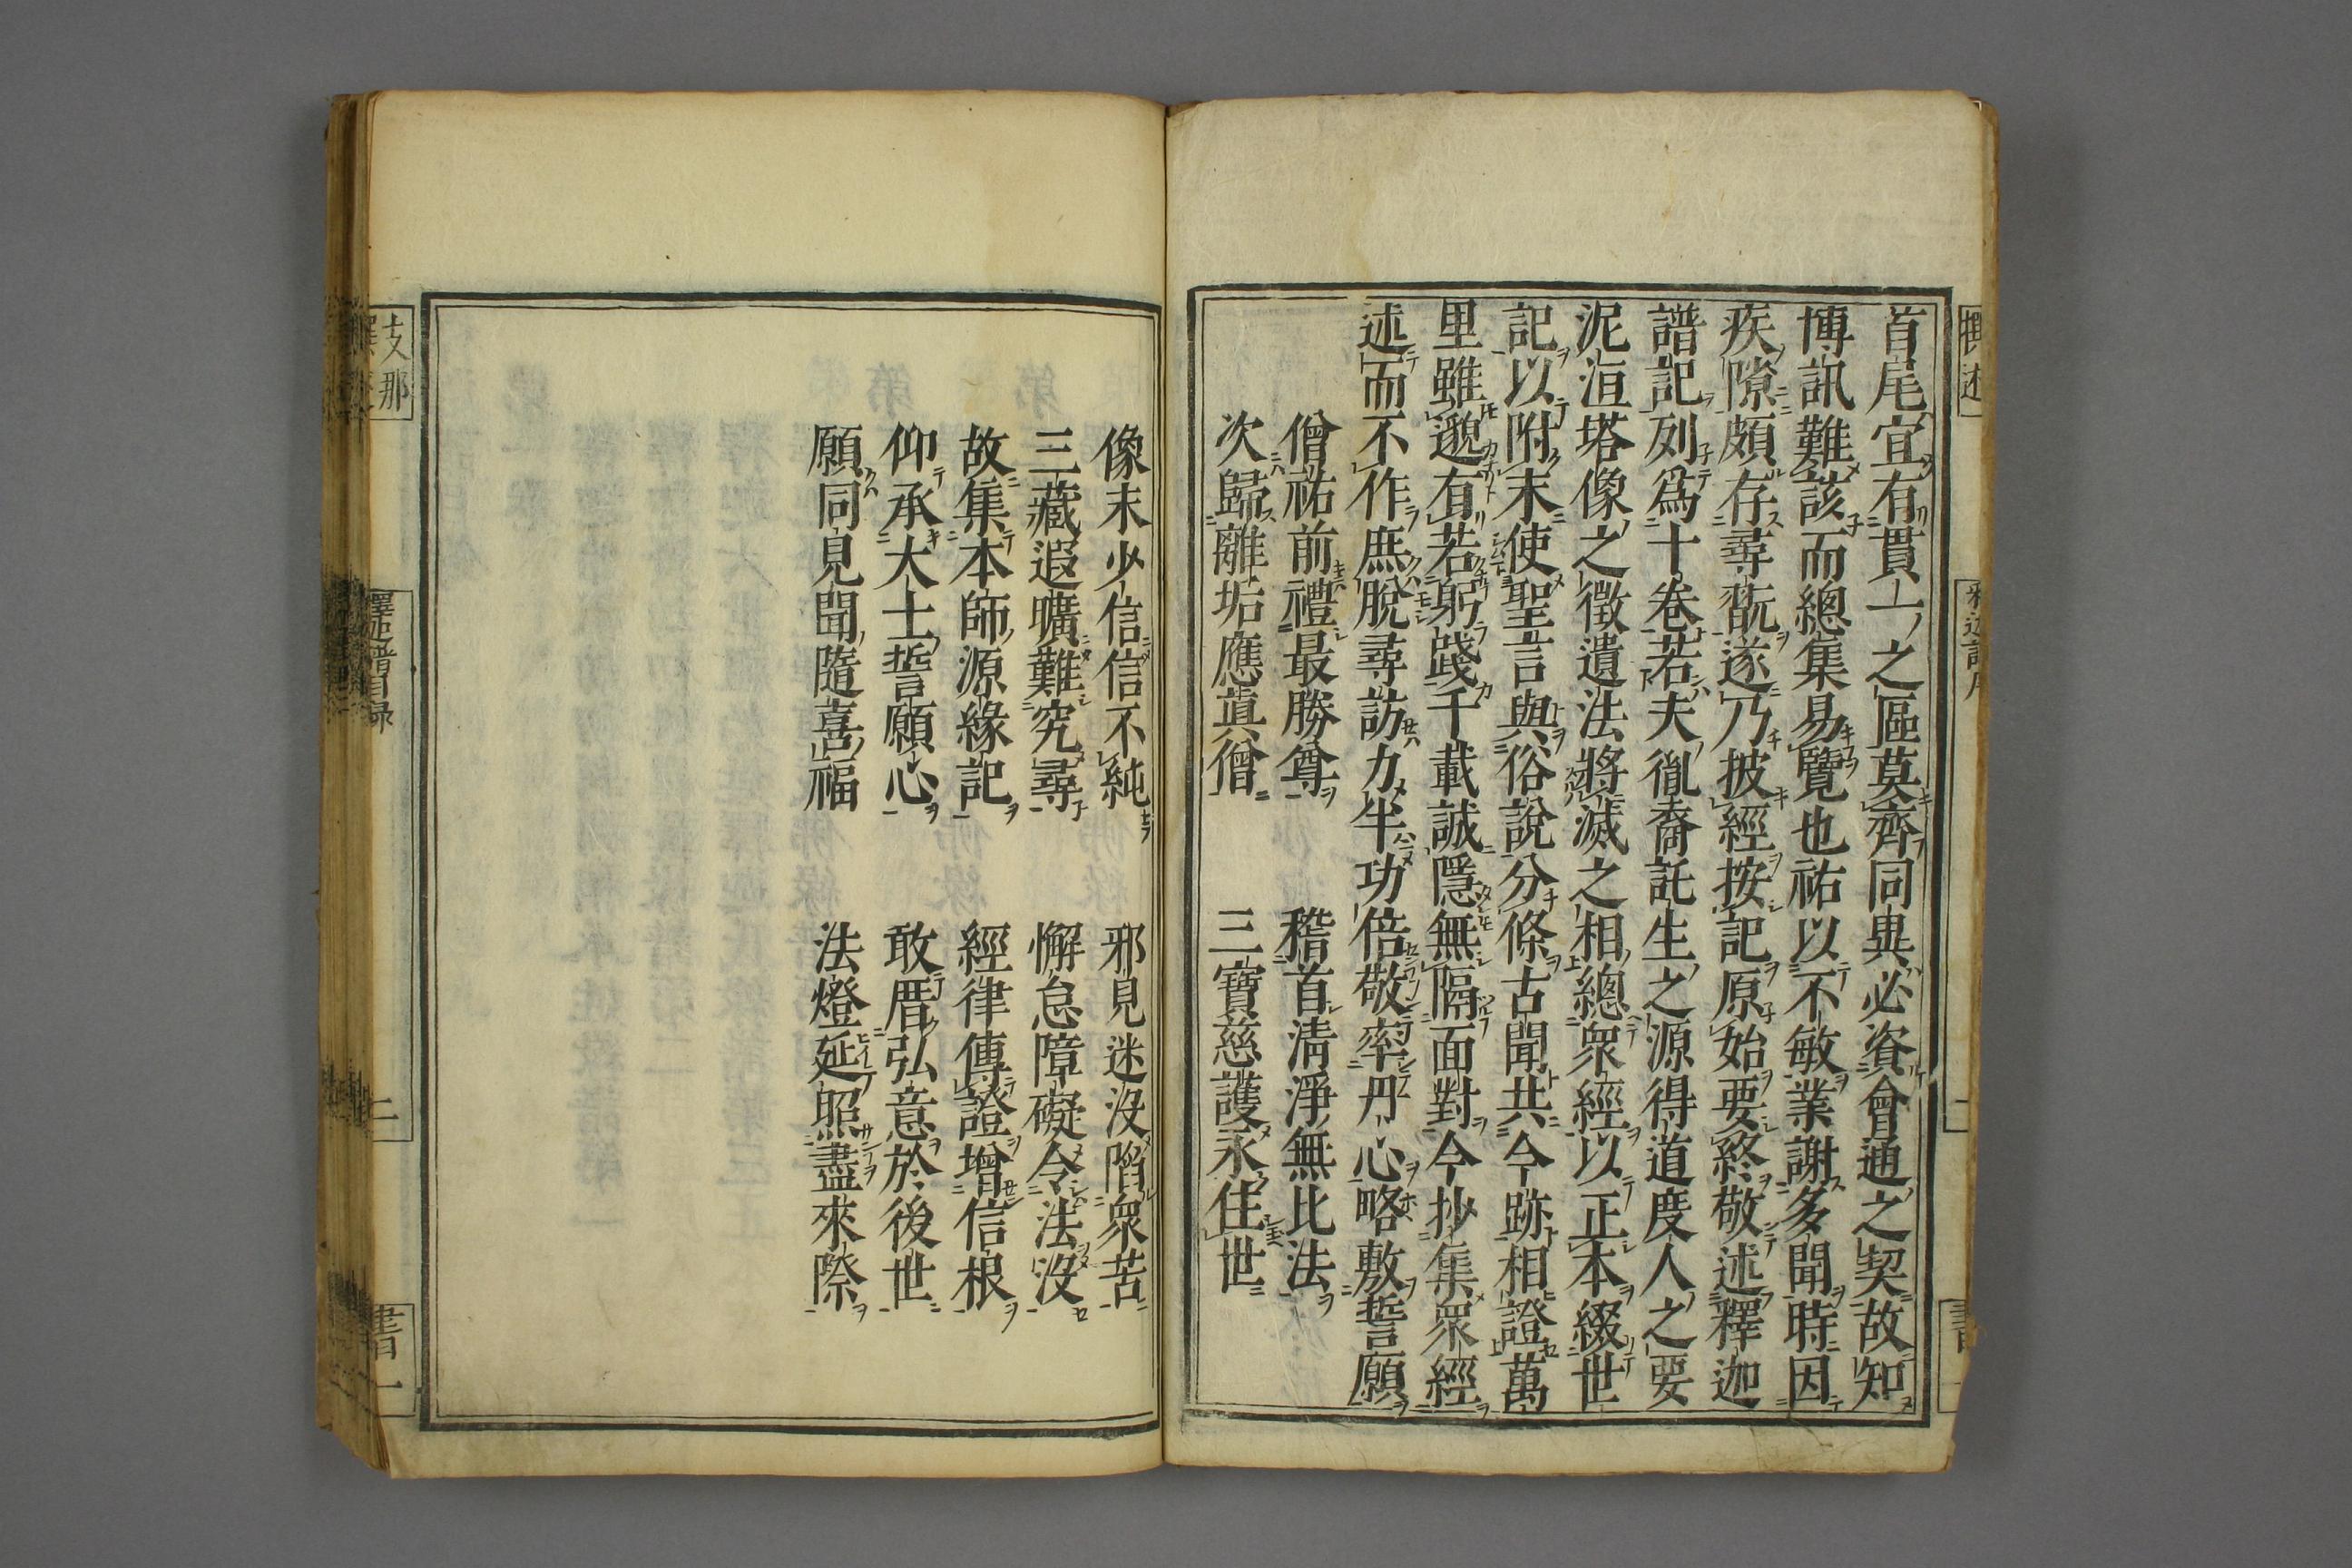 首尾宜有貫一之區莫齊同異必資會通之契故知
博訊難該而總集易覽也祐以不敏業謝多聞時因
疾隙頗存尋翫遂乃披經按記原始要終敬述釋迦
譜記列爲十卷若夫胤裔託生之源得道度人之要
泥洹塔像之徵遺法將滅之相總衆經以正本綴世
記以附末使聖言與俗說分條古聞共今跡相證萬
里雖邈有若躬踐千載誠隱無隔面對今抄集衆經
述而不作庶脫尋訪力半功倍敬率丹心略敷誓願
僧祐前禮最勝尊　稽首清淨無比法
次歸離垢應眞僧　三寶慈護永住世
像末少信信不純　邪見迷沒陷衆苦
三藏遐曠難究尋　懈怠障礙令法沒
故集本師源緣記　經律傳證增信根
仰承大士誓願心　敢厝弘意於後世
願同見聞隨喜福　法燈延照盡來際
支那
撰述
釋迦譜目録